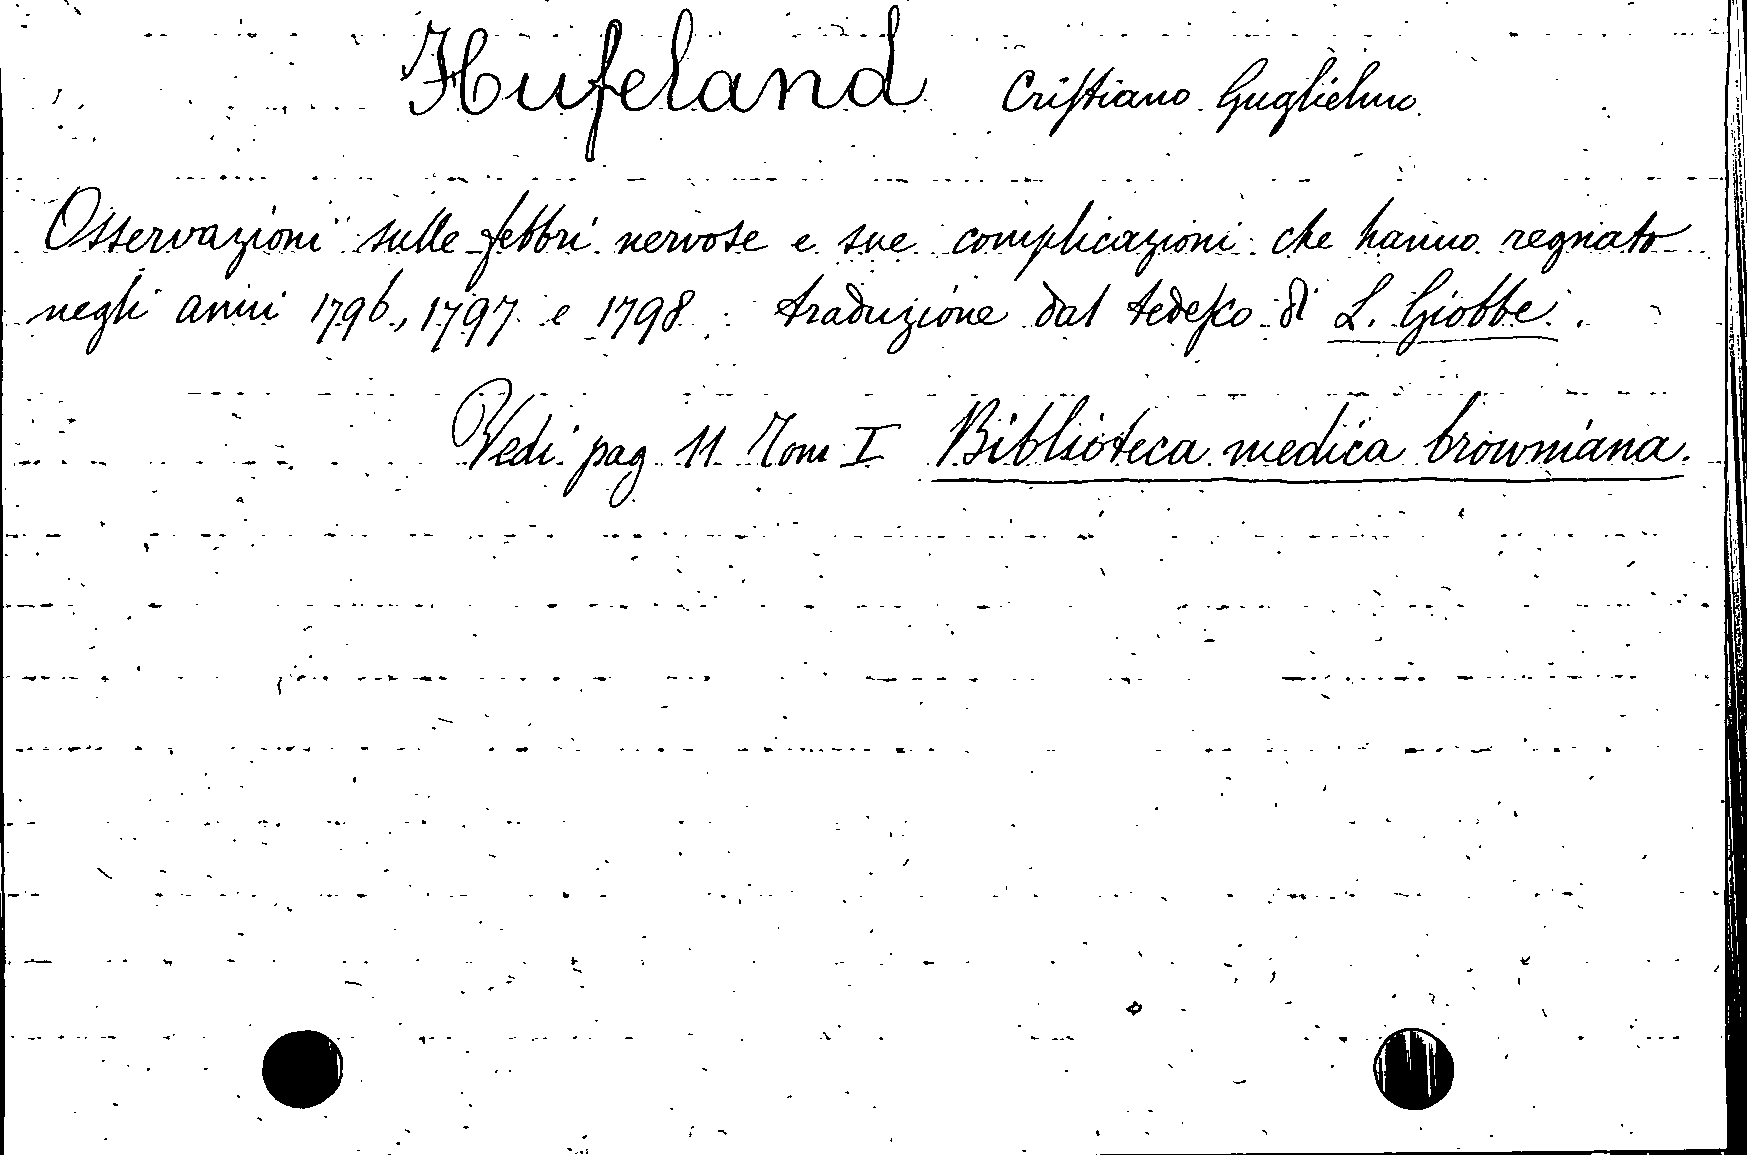 Hufeland Cristiano Guglielmo
Osservazioni sulle febbri nervose e sue complicazioni che hanno regnato
negli anni 1796, 1797 e 1798. traduzione dal tedesco di L. Giobbe.
Vedi pag 11 Tom I Biblioteca medica browniana.